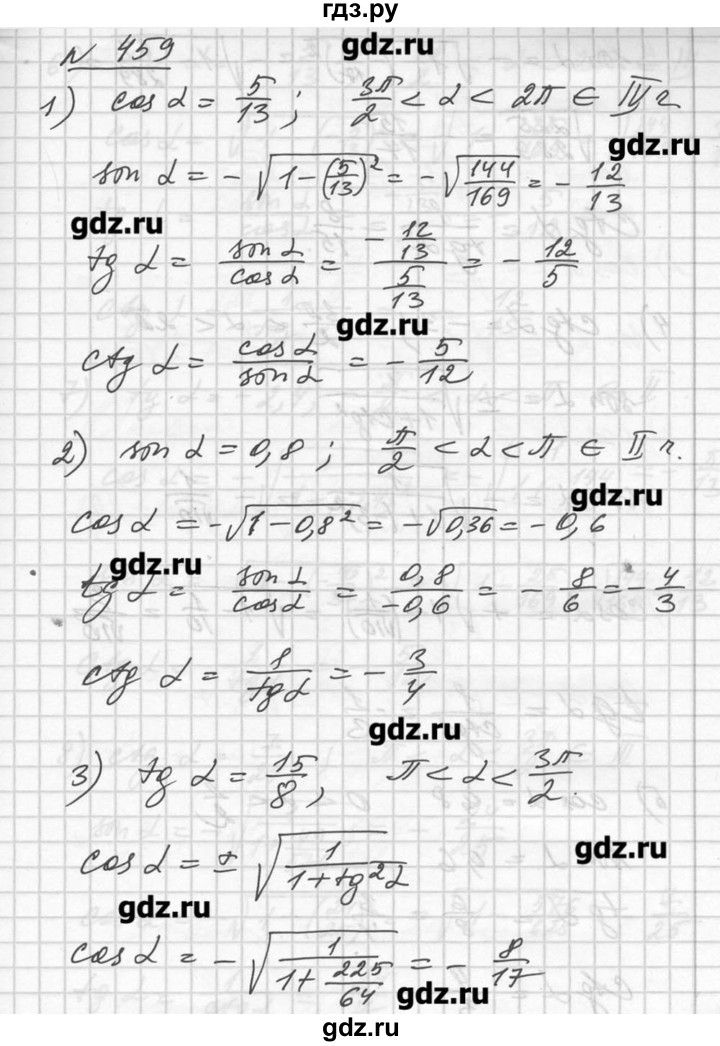 гдз.ру
№ 459
gdz.ru
1) cos α = 5/13 ; 3π/2 < α < 2π ∈ IV ч.
gdz.ru
sin α = -√(1-(5/13)²) = -√(144/169) = -12/13
gdz.ru
tg α = sin α/cos α = (-12/13)/(5/13) = -12/5
gdz.ru
ctg α = cos α/sin α = -5/12
2) sin α = 0,8 ; π/2 < α < π ∈ II ч.
gdz.ru
cos α = -√(1-0,8²) = -√0,36 = -0,6
gdz.ru
tg α = sin α/cos α = 0,8/-0,6 = -8/6 = -4/3
ctg α = 1/tg α = -3/4
gdz.ru
3) tg α = 15/8 , π < α < 3π/2 .
gdz.ru
cos α = ±√(1/(1+tg²α))
gdz.ru
cos α = -√(1/(1+225/64)) = -8/17
gdz.ru
gdz.ru